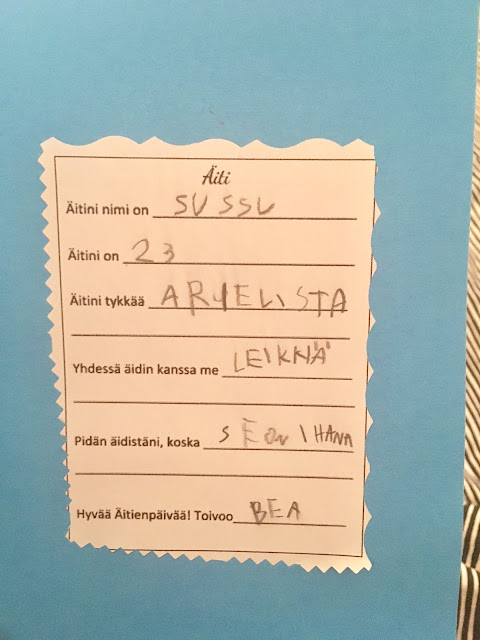 Äiti
Äitini nimi on SUSSU
Äitini on 23
Äitini tykkää ARYELISTA
Yhdessä äidin kanssa me LEIKKIÄ
Pidän äidistäni, koska SE ON IHANA
Hyvää Äitienpäivää! Toivoo BEA